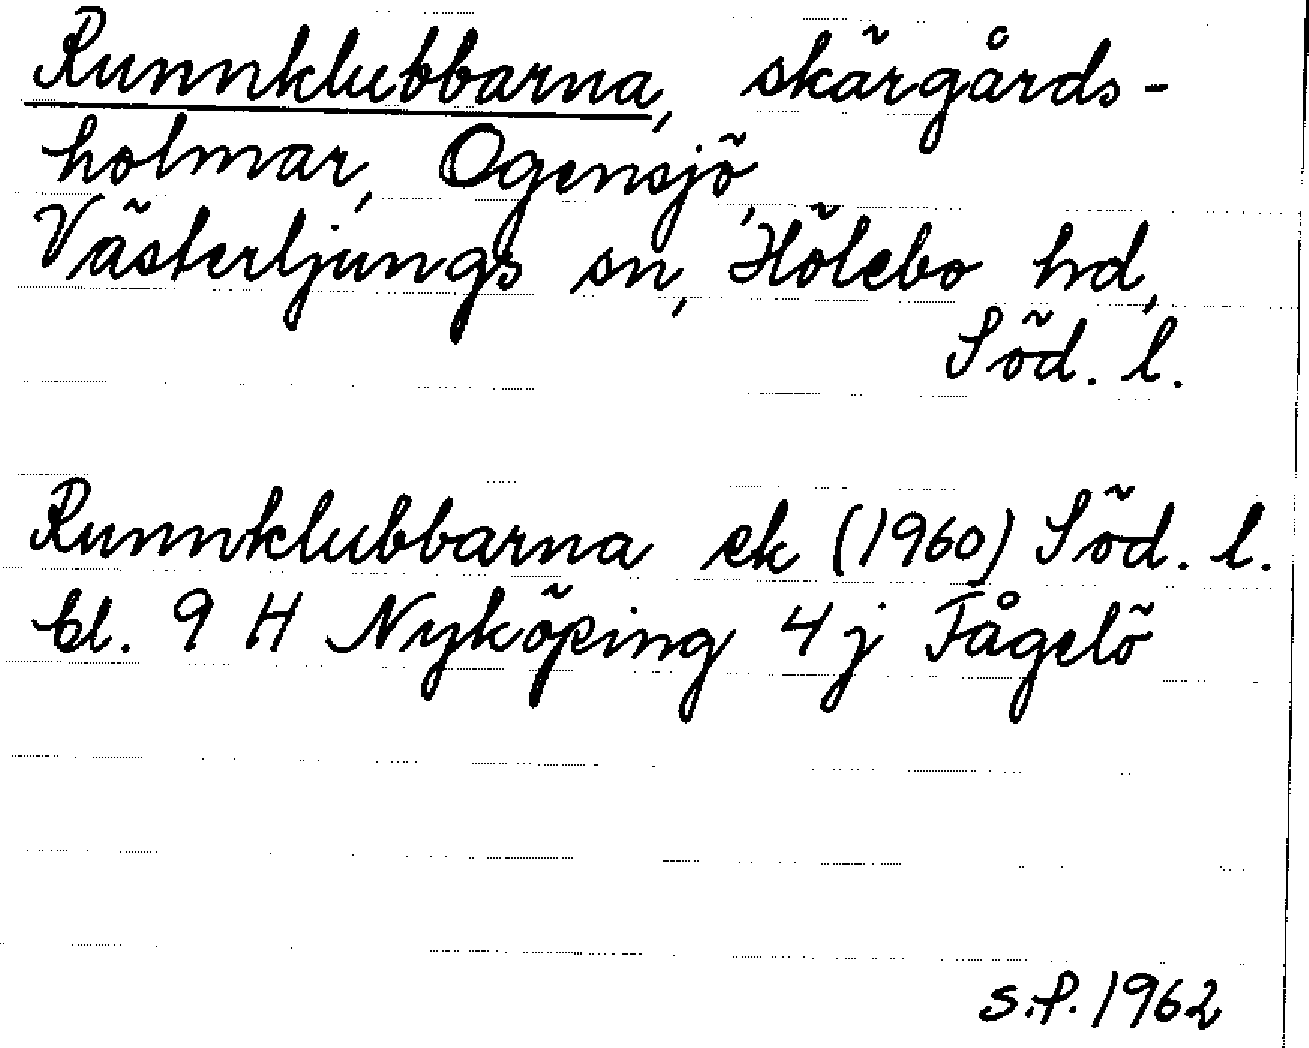 Runnklubbarna, skärgårds-
holmar, Ogensjö,
Västerljungs sn, Hölebo hd,
Söd. l.
Runnklubbarna ek (1960) Söd. l.
bl. 9 H Nyköping 4 j Fågelö
S.P. 1962